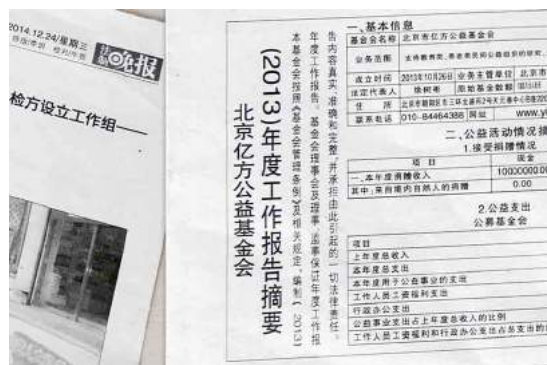 2014.12.24/星期三
法制晚报
检方设立工作组——
北京亿方公益基金会
(2013)年度工作报告摘要
本基金会按照《基金会管理条例》及相关规定,编制(2013)
年度工作报告。基金会理事会及理事、监事保证年度工作报
告内容真实、准确和完整,并承担由此引起的一切法律责任。
一、基本信息
基金会名称 北京市亿方公益基金会
业务范围
成立时间 2013年10月26日 业务主管单位 北京市
法定代表人 原始基金数额
住 所
联系电话 010-84464388 网址 www.y
二、公益活动情况
1.接受捐赠情况
项 目 现金
一、本年度捐赠收入 10000000.00
其中:来自境内自然人的捐赠 0.00
2.公益支出
公募基金会
项目
上年度总收入
本年度总支出
本年度用于公益事业的支出
工作人员工资福利支出
行政办公支出
公益事业支出占上年度总收入的比例
工作人员工资福利和行政办公支出占总支出的